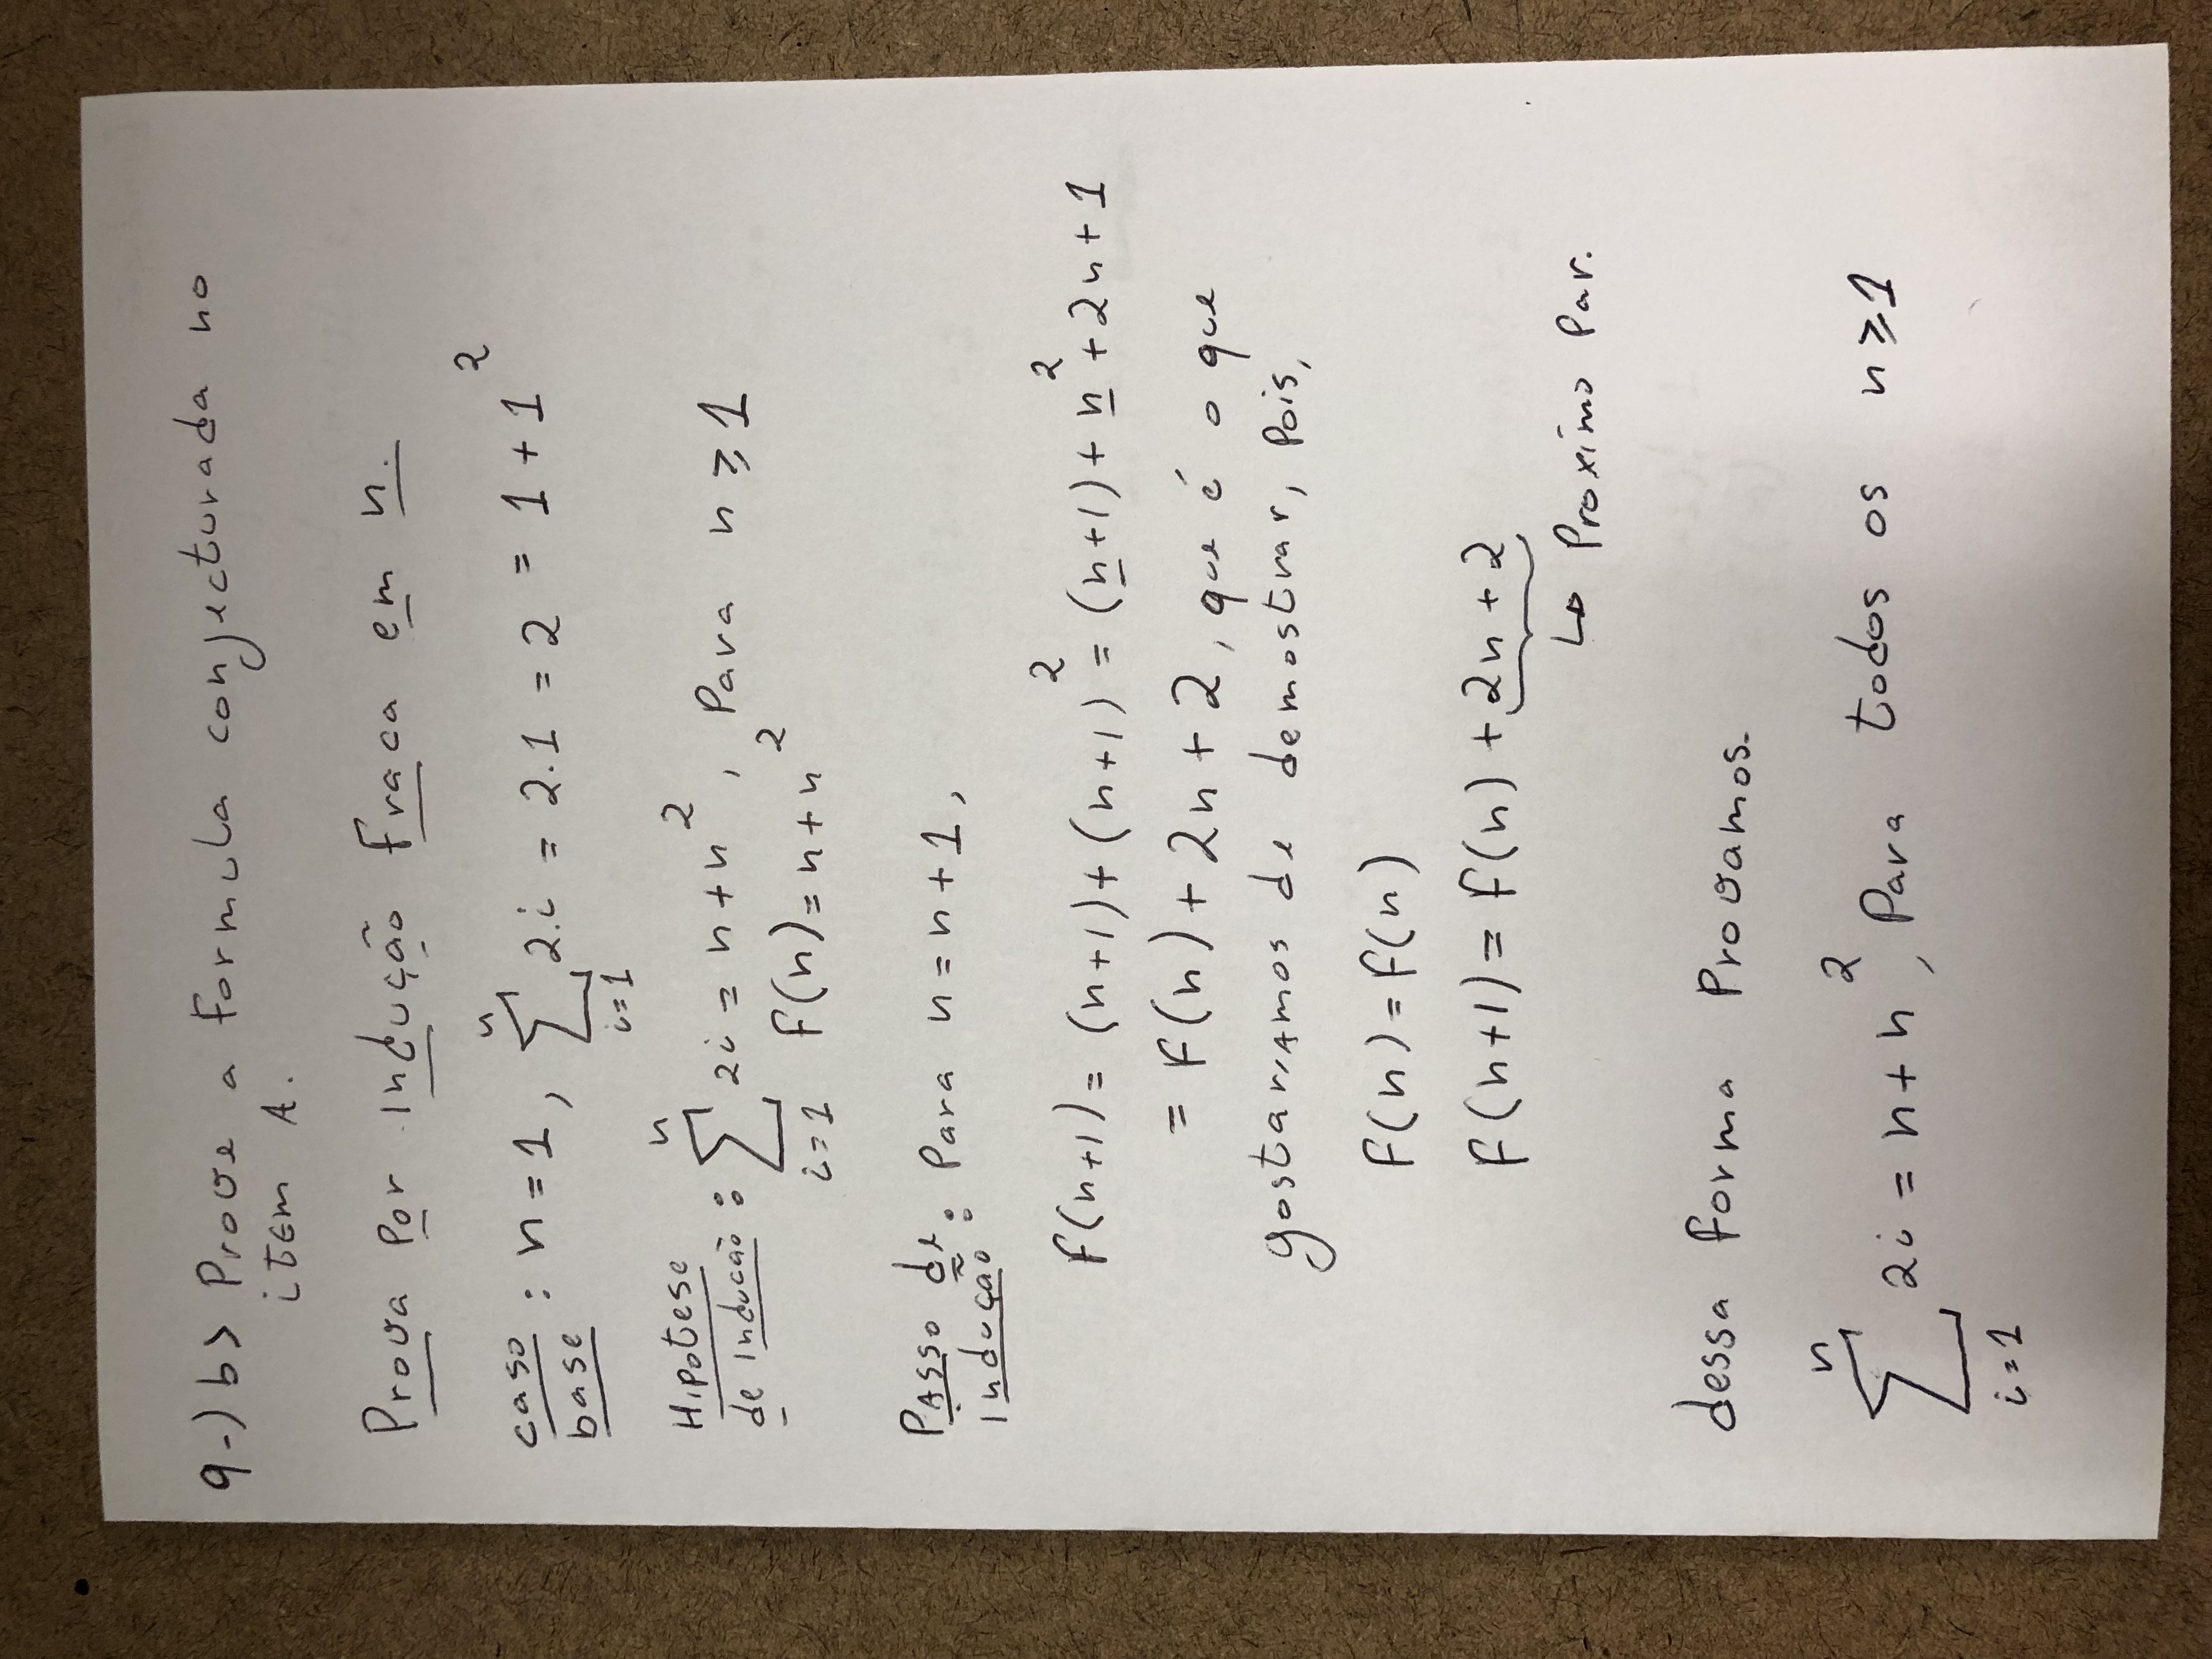 9-) b> Prove a formula conjecturada no
item A.
Prova por indução fraca em n.
caso base: n = 1, ∑_{i=1}^{n} 2.i = 2.1 = 2 = 1 + 1²
Hipotese de indução: ∑_{i=1}^{n} 2i = n + n², Para n ≥ 1
f(n) = n + n²
Passo de indução: Para n = n + 1,
f(n+1) = (n+1) + (n+1)² = (n+1) + n² + 2n + 1
= f(n) + 2n + 2, que é o que
gostariamos de demostrar, Pois,
f(n) = f(n)
f(n+1) = f(n) + 2n + 2
↳ Proximo Par.
dessa forma Provamos.
∑_{i=1}^{n} 2i = n + n², Para todos os n ≥ 1